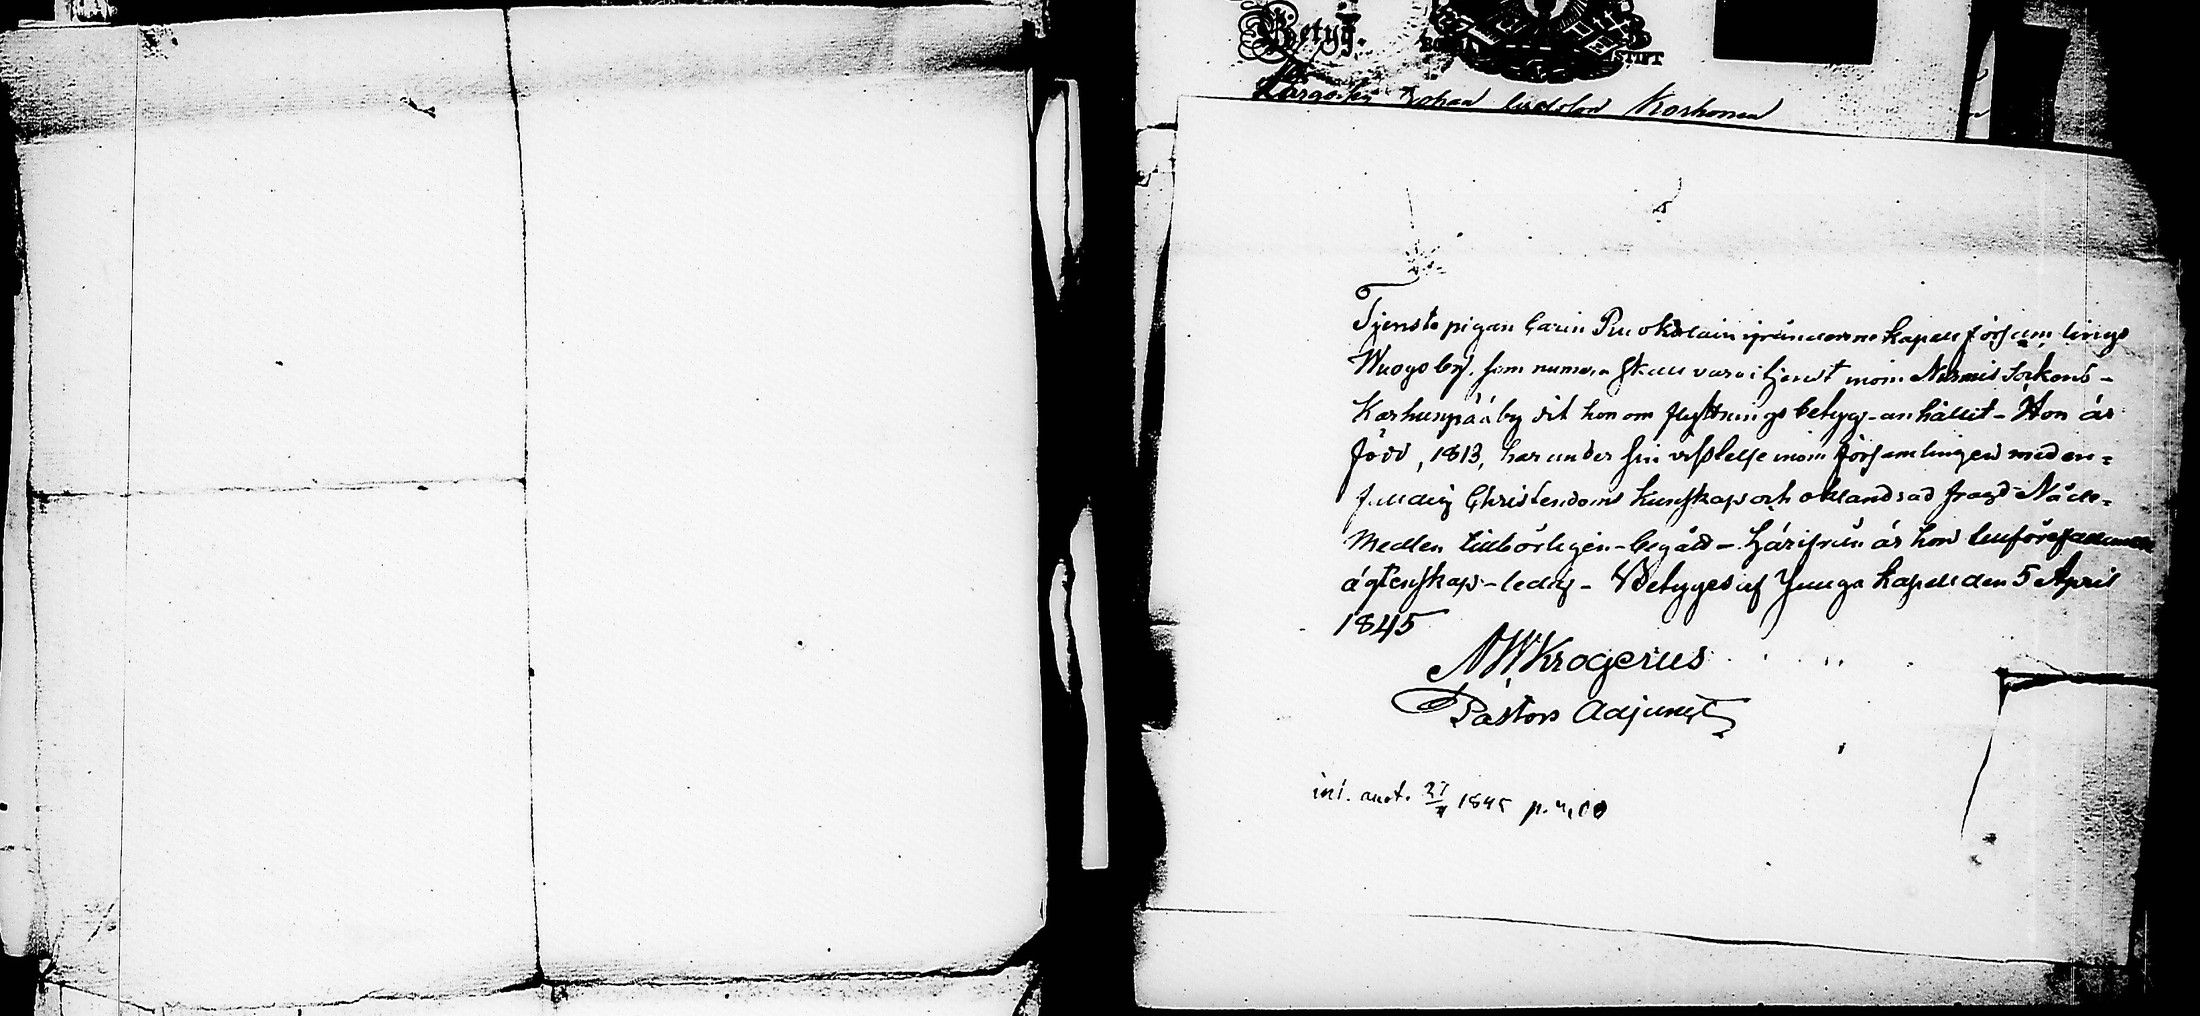 Betyg.
BORGÅ STIFT
Johan Korhonen
Tjenste pigan Carin Ruokolain ifrån denne kapell församlings
Wuogo by. som numera skall vara i tjenst inom Nurmis Sockens-
Karhunpää by dit hon om flyttnings betyg - anhållit - Hon är
född, 1813, har under sin vistelse inom församlingen med en-
faldig Christendoms kunskap och oklandrad fragd - Nåde-
Medlen tillbörligen - begått - Härifrån är hon
ägtenskap - ledig - Betyges af Juuga kapell den 5 April
1845
N W Krogerus
Pastors Adjunct
inl. anot. 27/4 1845 p.